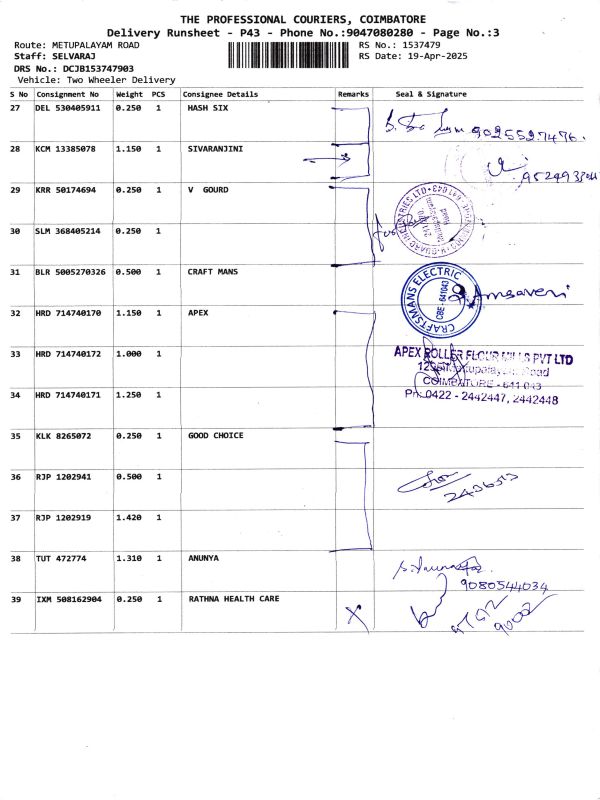 THE PROFESSIONAL COURIERS, COIMBATORE
Delivery Runsheet - P43 - Phone No.:9047080280 - Page No.:3
Route: METUPALAYAM ROAD
RS No.: 1537479
Staff: SELVARAJ
RS Date: 19-Apr-2025
DRS No.: DCJB153747903
Vehicle: Two Wheeler Delivery
S No Consignment No Weight PCS Consignee Details Remarks Seal & Signature
27 DEL 530405911 0.250 1 HASH SIX
9025527476.
28 KCM 13385078 1.150 1 SIVARANJINI
29 KRR 50174694 0.250 1 V GOURD
30 SLM 368405214 0.250 1
31 BLR 5005270326 0.500 1 CRAFT MANS
CRAFTSMANS ELECTRIC
CBE - 641043
Amsaveni
32 HRD 714740170 1.150 1 APEX
33 HRD 714740172 1.000 1
APEX ROLLER FLOUR MILLS PVT LTD
Road
COIMBATORE - 641 043
Ph: 0422 - 2442447, 2442448
34 HRD 714740171 1.250 1
35 KLK 8265072 0.250 1 GOOD CHOICE
36 RJP 1202941 0.500 1
37 RJP 1202919 1.420 1
38 TUT 472774 1.310 1 ANUNYA
9080544034
39 IXM 508162904 0.250 1 RATHNA HEALTH CARE
X